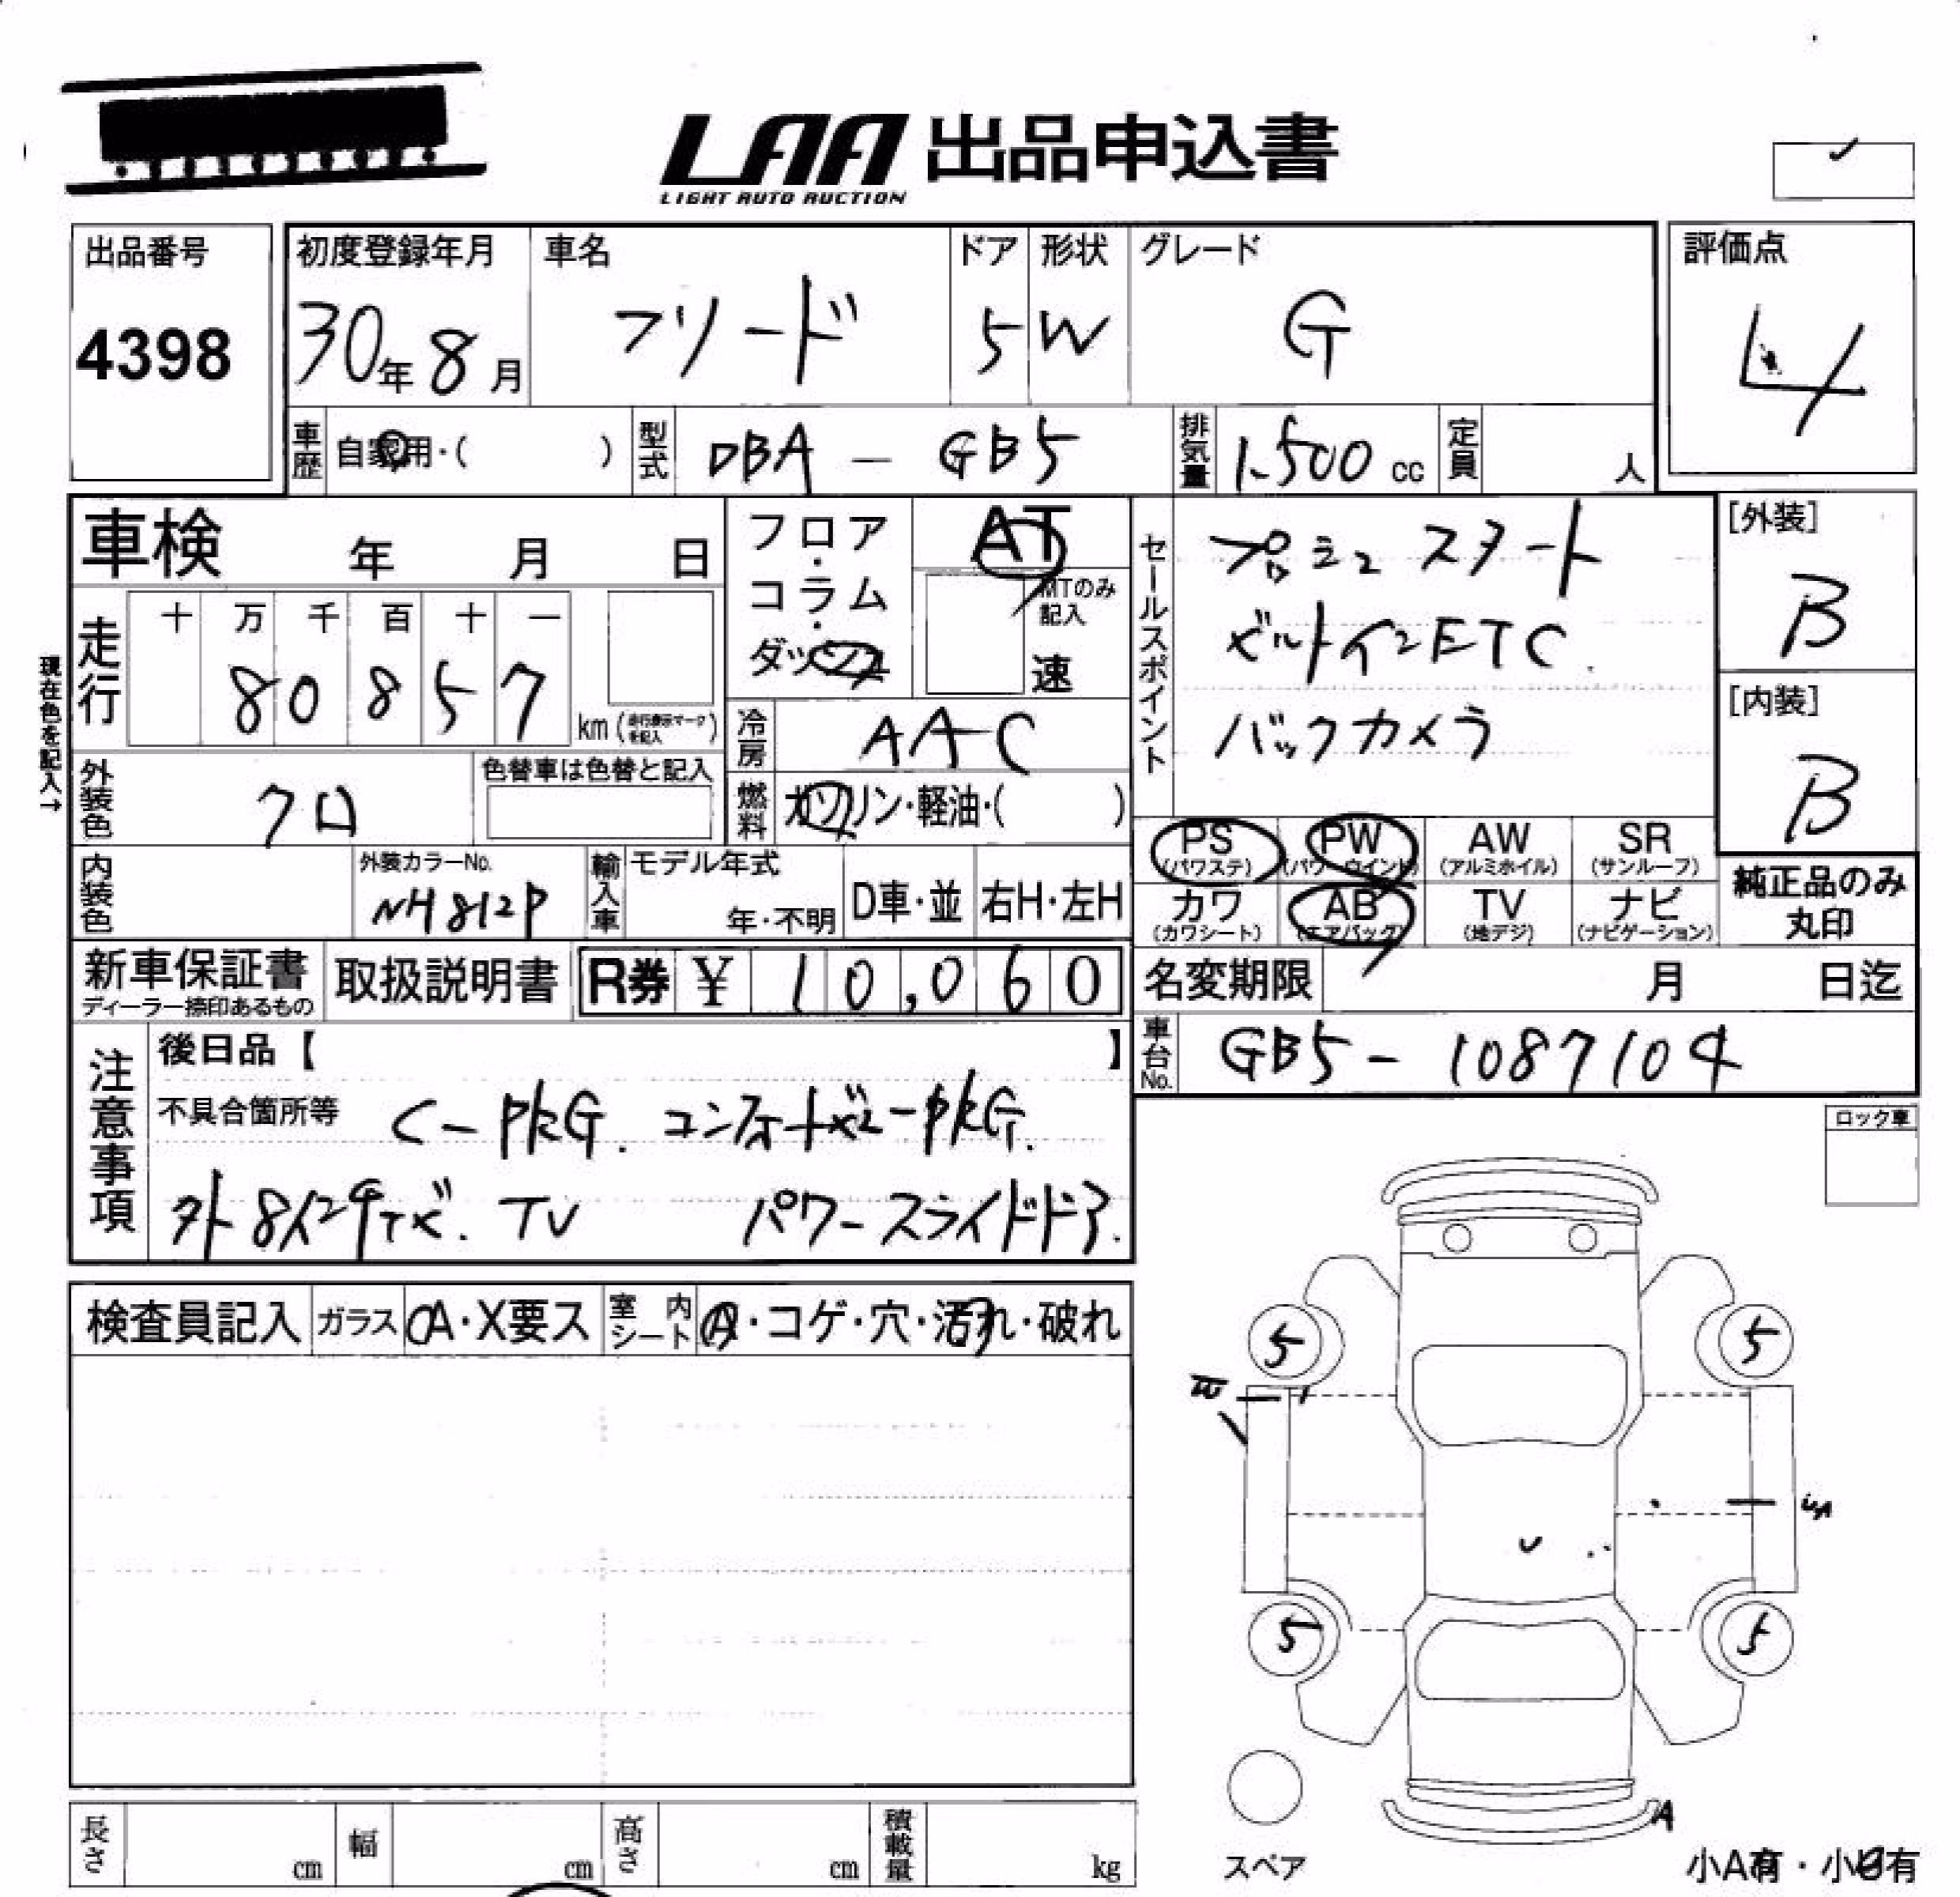 LAA 出品申込書
LIGHT AUTO AUCTION
出品番号
4398
初度登録年月 車名 ドア 形状 グレード
30年 8月 フリード 5 W G
評価点
4
車歴 自家用・( ) 型式 DBA - GB5 排気量 1.500 cc 定員 人
車検 年 月 日
フロア・コラム・ダッシュ
AT
MTのみ記入
速
セールスポイント
プッシュスタート
ビルトインETC.
バックカメラ
[外装]
B
[内装]
B
現在色を記入→
走行 十 万 千 百 十 一
8 0 8 5 7
km (走行表示マークを記入)
冷房 AAC
外装色 クロ
色替車は色替と記入
燃料 ガソリン・軽油・( )
PS (パワステ) PW (パワーウインド) AW (アルミホイル) SR (サンルーフ)
カワ (カワシート) AB (エアバッグ) TV (地デジ) ナビ (ナビゲーション)
純正品のみ丸印
内装色
外装カラーNo.
NH812P
輸入車 モデル年式 年・不明 D車・並 右H・左H
新車保証書
ディーラー捺印あるもの
取扱説明書
R券 ¥ 10,060
名変期限 月 日迄
車台No. GB5 - 1087104
注意事項
後日品【 】
不具合箇所等 C-PKG. コンフォートビューPKG.
外8インチナビ. TV パワースライドドア.
ロック車
検査員記入 ガラス A・X要ス 室内シート A・コゲ・穴・汚れ・破れ
5 5
5 5
A
スペア
小A有・小B有
長さ cm 幅 cm 高さ cm 積載量 kg